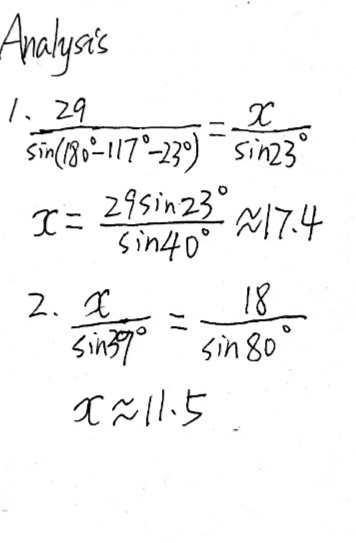 Analysis
1. 29/sin(180°-117°-23°) = x/sin23°
x = 29sin23°/sin40° ≈17.4
2. x/sin39° = 18/sin80°
x≈11.5